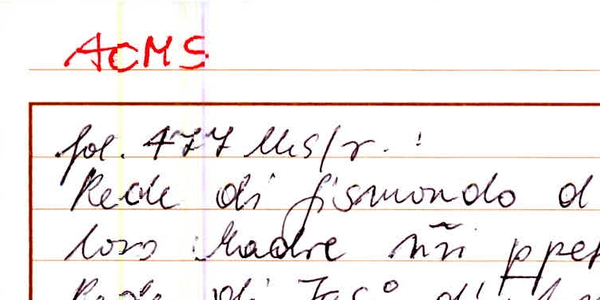 ACMS
fol. 477 Us/r. :
Rede di Gismondo d
loro Madre nr̃i ppet
Rede di Jac° di